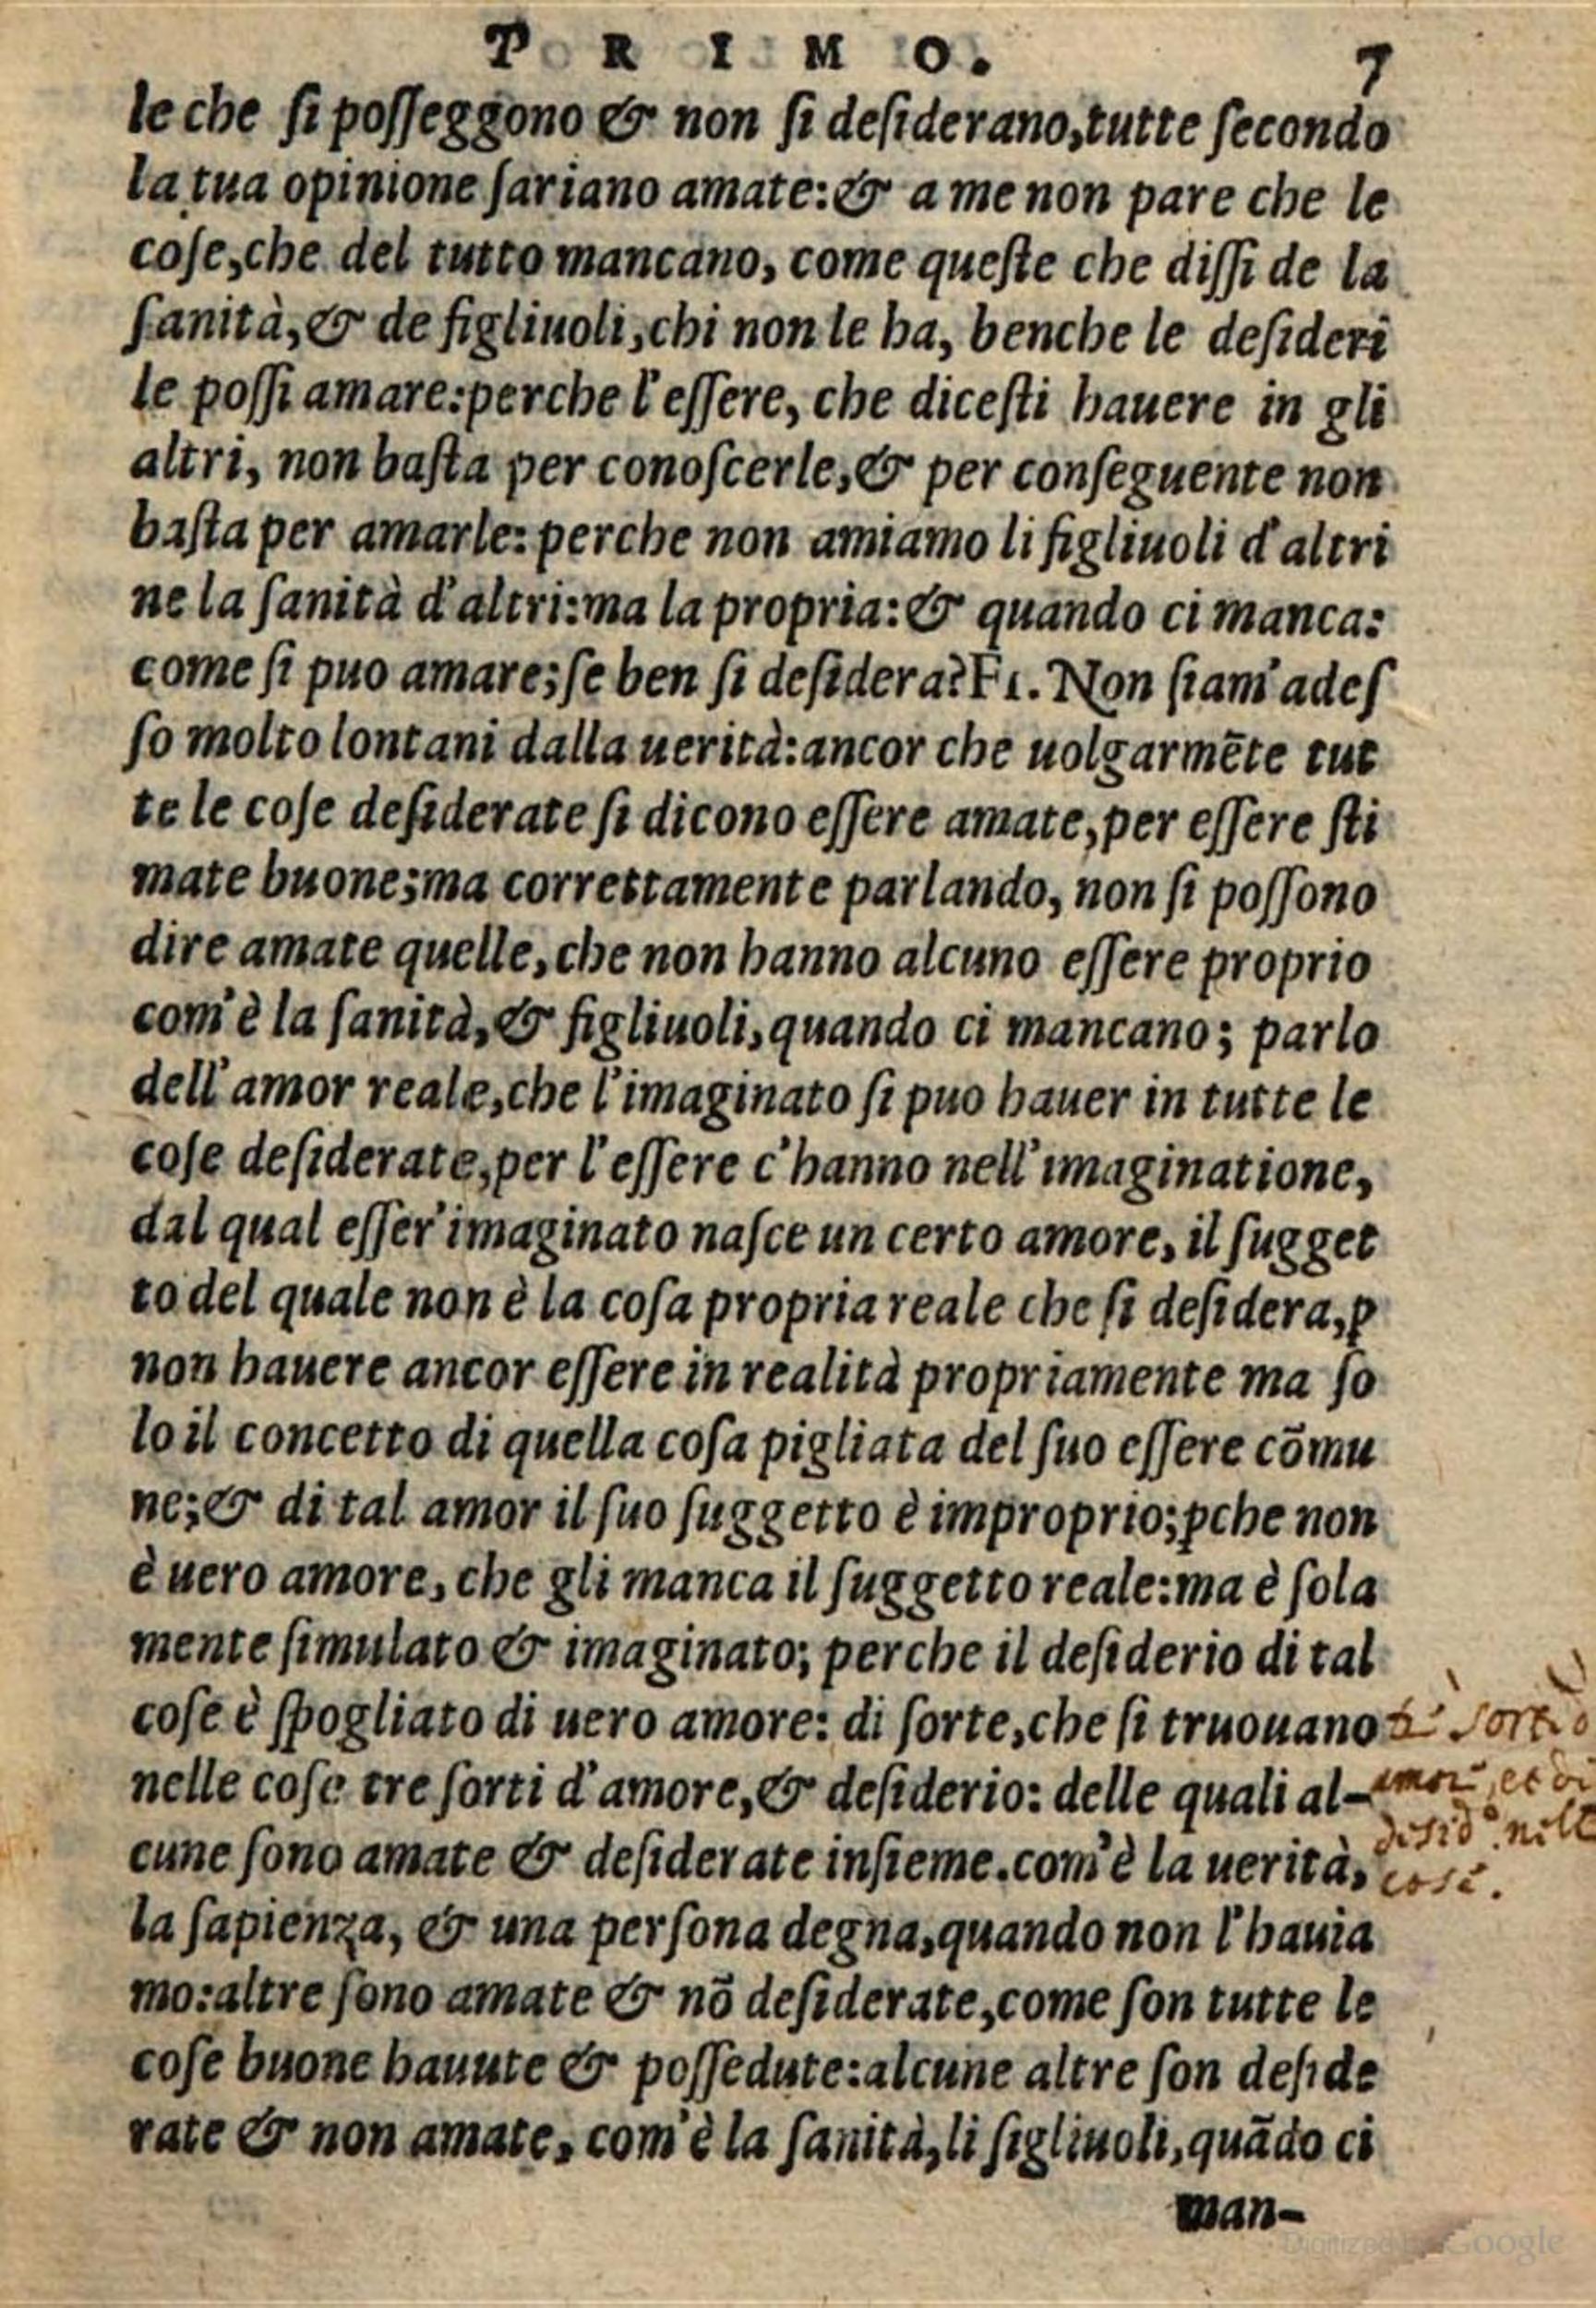 PRIMO. 7
le che ſi poſſeggono & non ſi deſiderano,tutte ſecondo
la tua opinione ſariano amate:& a me non pare che le
coſe,che del tutto mancano, come queſte che diſſi de la
ſanità,& de figliuoli,chi non le ha, benche le deſideri
le poſſi amare:perche l'eſſere, che diceſti hauere in gli
altri, non baſta per conoſcerle,& per conſeguente non
baſta per amarle: perche non amiamo li figliuoli d'altri
ne la ſanità d'altri:ma la propria:& quando ci manca:
come ſi puo amare;ſe ben ſi deſidera?FI. Non ſiam'adeſ
ſo molto lontani dalla uerità:ancor che uolgarmēte tut
te le coſe deſiderate ſi dicono eſſere amate,per eſſere ſti
mate buone;ma correttamente parlando, non ſi poſſono
dire amate quelle,che non hanno alcuno eſſere proprio
com'è la ſanità,& figliuoli,quando ci mancano; parlo
dell'amor reale,che l'imaginato ſi puo hauer in tutte le
coſe deſiderate,per l'eſſere c'hanno nell'imaginatione,
dal qual eſſer'imaginato naſce un certo amore, il ſugget
to del quale non è la coſa propria reale che ſi deſidera,ꝑ
non hauere ancor eſſere in realità propriamente ma ſo
lo il concetto di quella coſa pigliata del ſuo eſſere cōmu
ne;& di tal amor il ſuo ſuggetto è improprio;ꝑche non
è uero amore, che gli manca il ſuggetto reale:ma è ſola
mente ſimulato & imaginato; perche il deſiderio di tal
coſe è ſpogliato di uero amore: di ſorte,che ſi truouano
nelle coſe tre ſorti d'amore,& deſiderio: delle quali al-
cune ſono amate & deſiderate inſieme.com'è la uerità,
la ſapienza, & una perſona degna,quando non l'hauia
mo:altre ſono amate & nō deſiderate,come ſon tutte le
coſe buone hauute & poſſedute:alcune altre ſon deſide
rate & non amate, com'è la ſanità,li ſigliuoli,quādo ci
man-
amor, et di
cose.
Digitized by Google